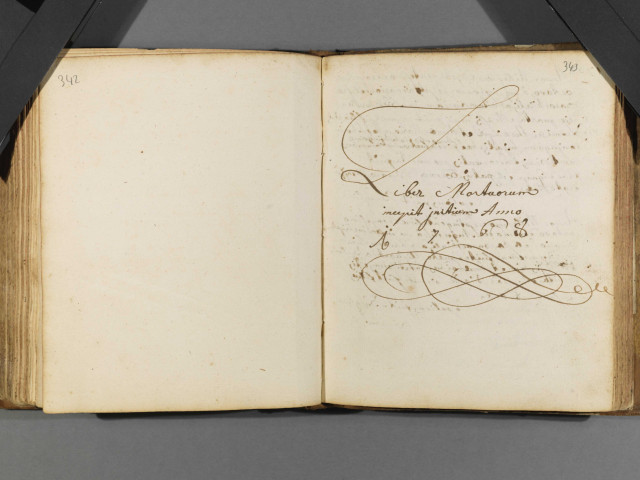 342
343
Liber Mortuorum
incepit initium Anno
1 7 6 8